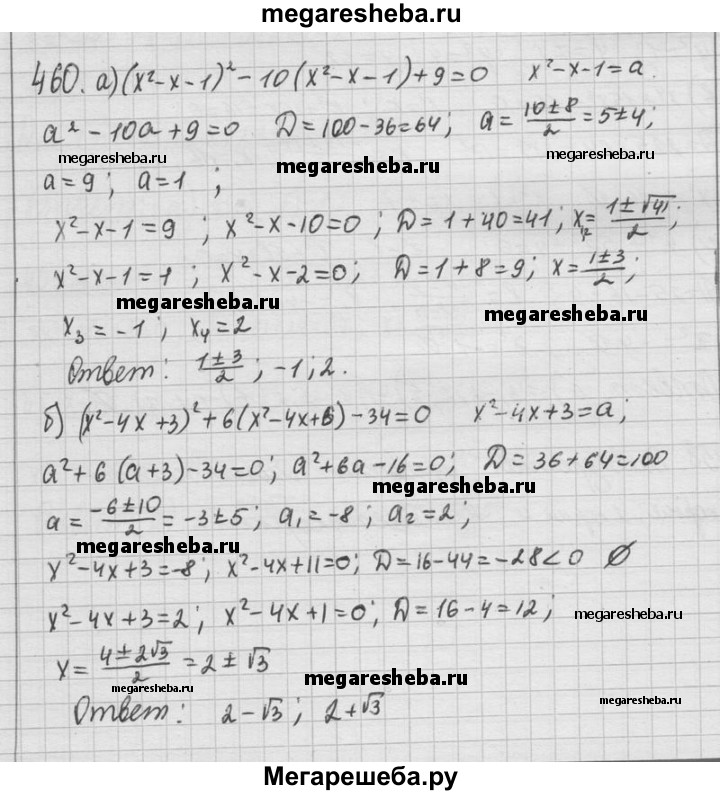 megaresheba.ru
460. а) (x²-x-1)² - 10(x²-x-1)+9=0 x²-x-1=a.
a²-10a+9=0 Д=100-36=64; a=(10±8)/2=5±4;
megaresheba.ru megaresheba.ru megaresheba.ru
a=9; a=1 ;
x²-x-1=9 ; x²-x-10=0 ; Д=1+40=41; x₁,₂=(1±√41)/2;
x²-x-1=1 ; x²-x-2=0; Д=1+8=9; x=(1±3)/2;
megaresheba.ru megaresheba.ru
x₃=-1 ; x₄=2
Ответ: (1±3)/2 ; -1; 2.
б) (x²-4x+3)²+6(x²-4x+6)-34=0 x²-4x+3=a;
a²+6(a+3)-34=0; a²+6a-16=0; Д=36+64=100
megaresheba.ru
a=(-6±10)/2=-3±5; a₁=-8; a₂=2;
megaresheba.ru
x²-4x+3=-8; x²-4x+11=0; Д=16-44=-28<0 ∅
x²-4x+3=2; x²-4x+1=0; Д=16-4=12;
megaresheba.ru
x=(4±2√3)/2=2±√3
megaresheba.ru megaresheba.ru
Ответ: 2-√3; 2+√3
megaresheba.ru
Мегарешеба.ру